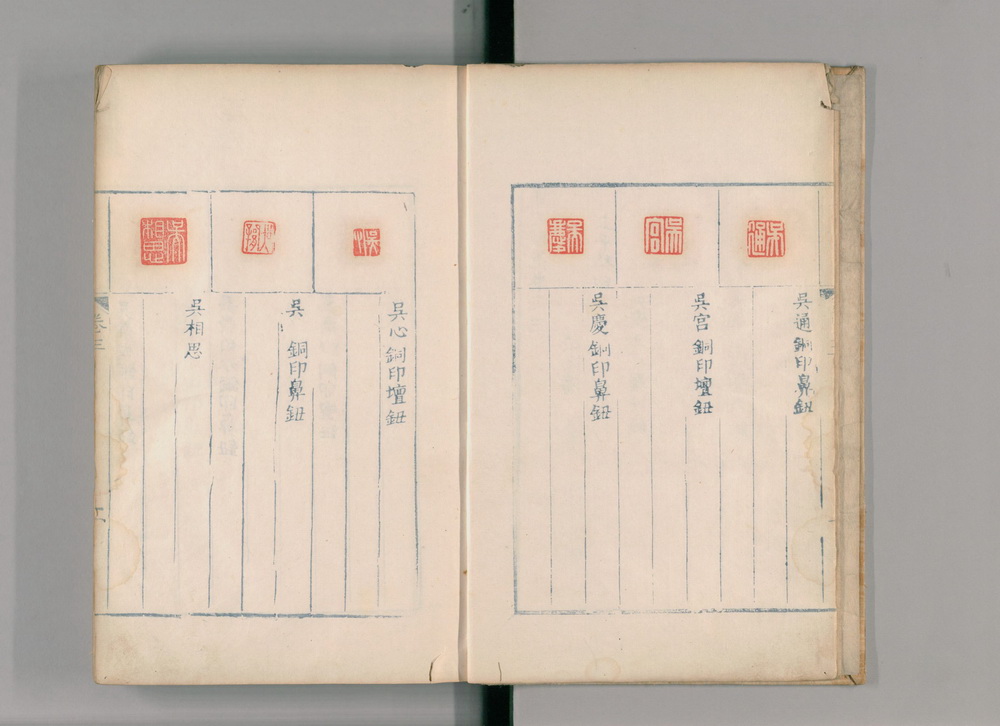 吳通銅印鼻鈕
吳宮銅印壇鈕
吳慶銅印鼻鈕
吳心銅印壇鈕
吳 銅印鼻鈕
吳相思
卷三